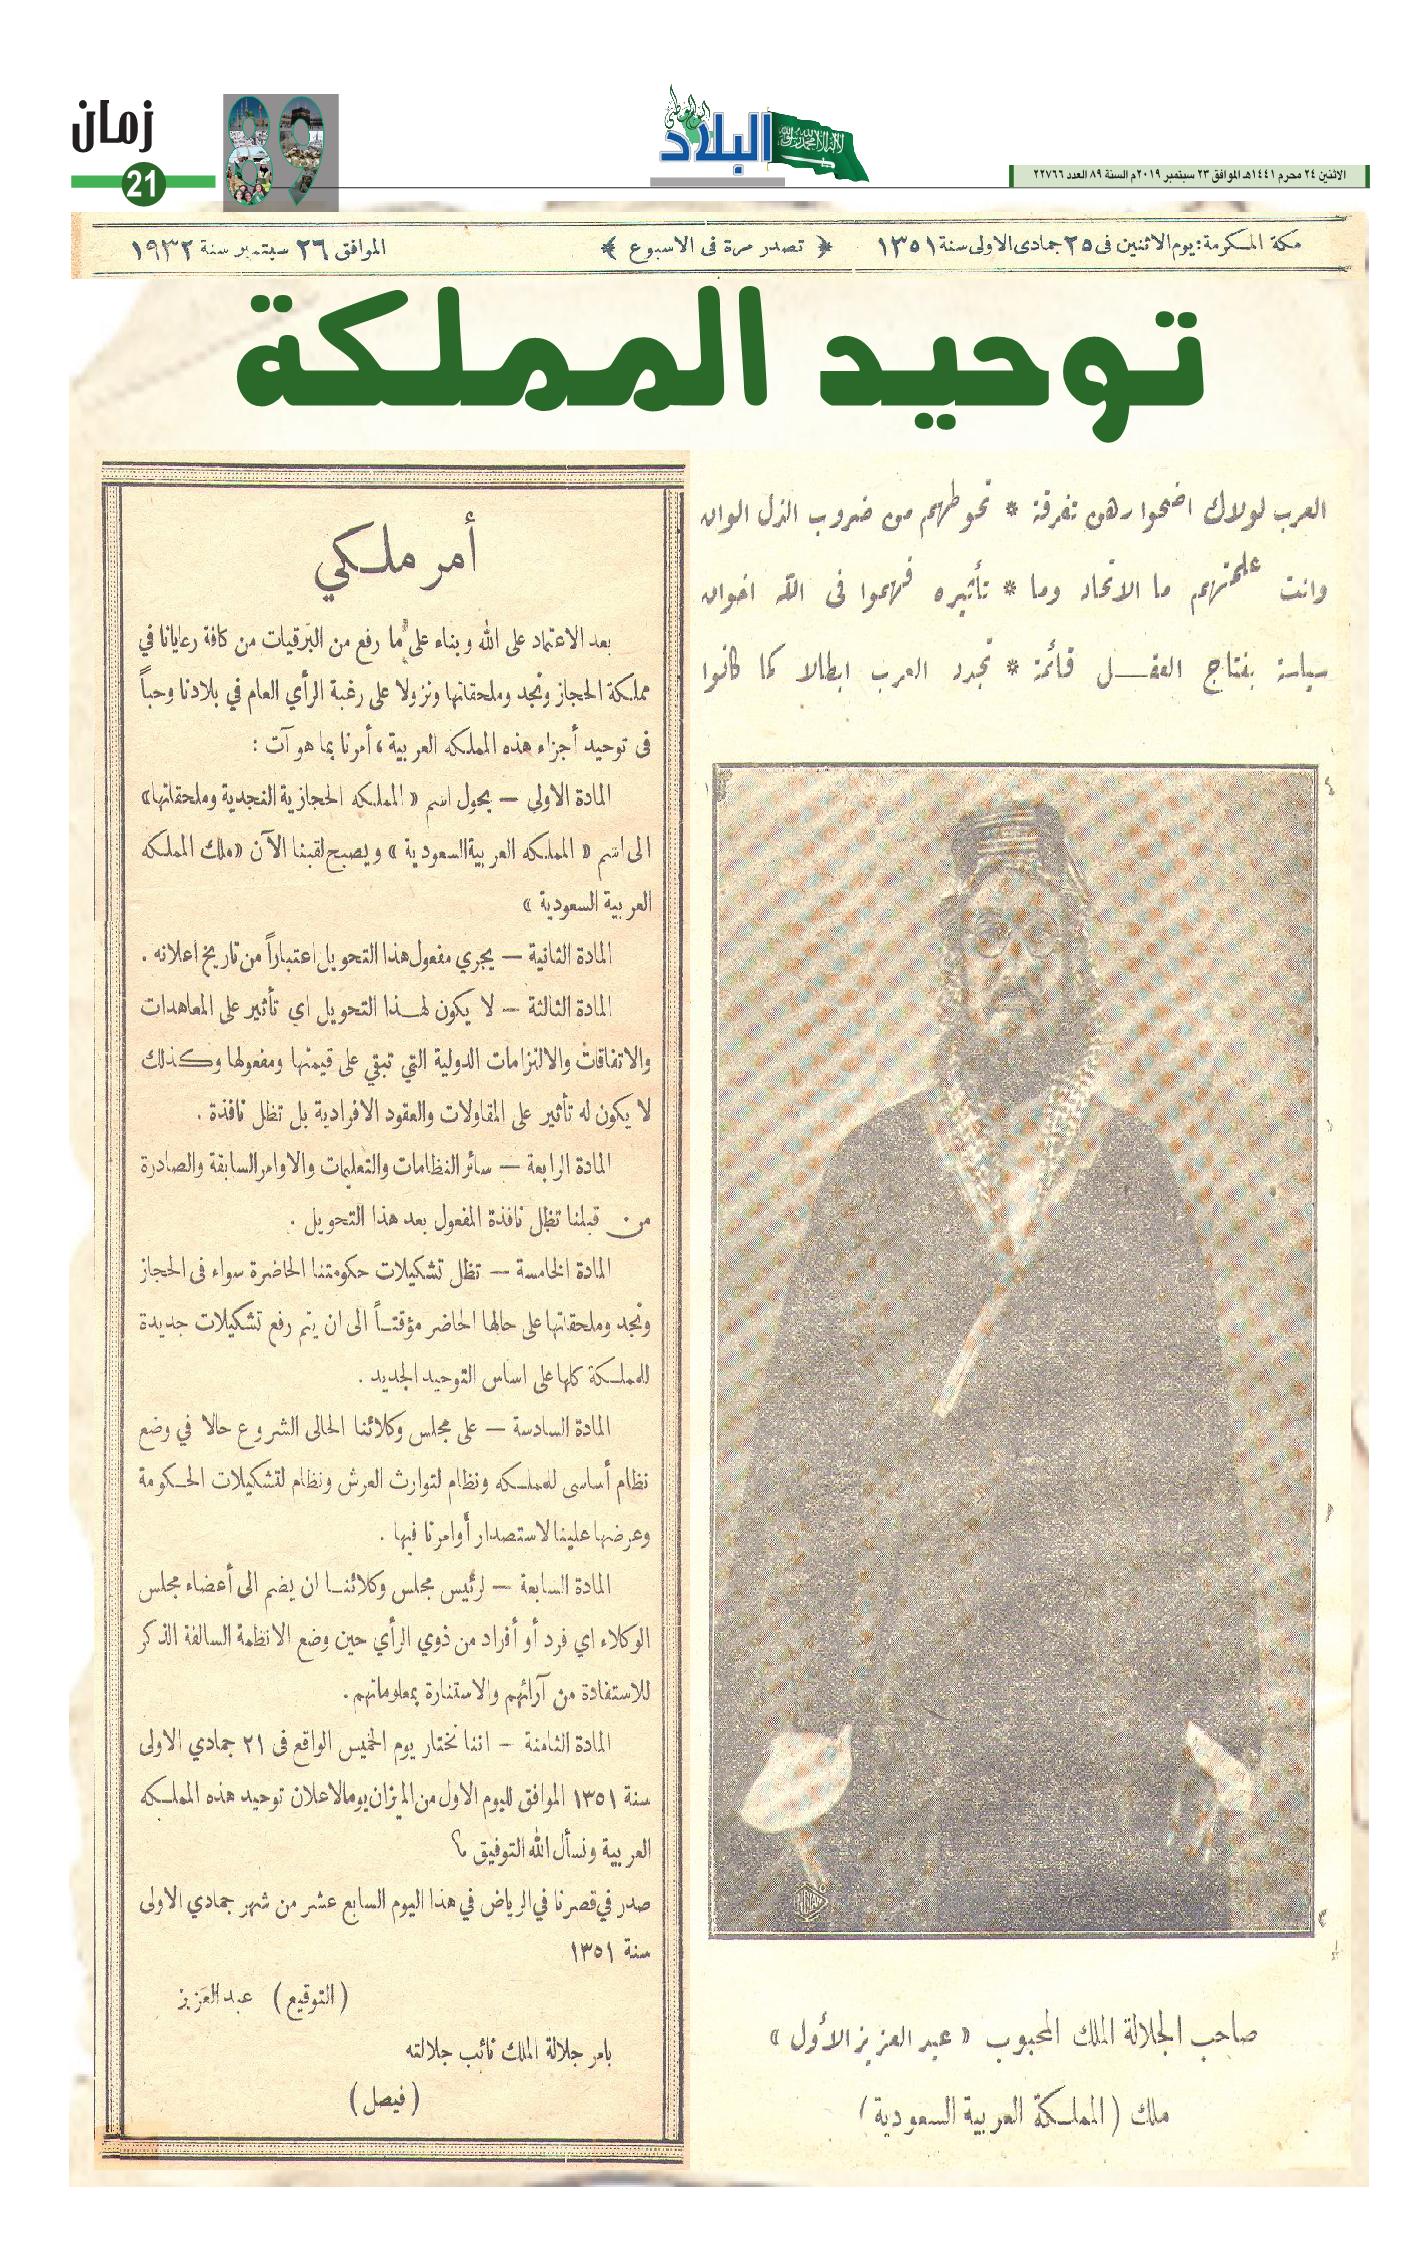 زمان
21
89
اليوم الوطني
البلاد
لا إله إلا الله محمد رسول الله
الاثنين ٢٤ محرم ١٤٤١هـ الموافق ٢٣ سبتمبر ٢٠١٩م السنة ٨٩ العدد ٢٢٧٦٦
مكة المكرمة: يوم الاثنين فى ٢٥ جمادى الاولى سنة ١٣٥١ ﴿ تصدر مرة فى الاسبوع ﴾ الموافق ٢٦ سبتمبر سنة ١٩٣٢
توحيد المملكة
العرب لولاك اضحوا رهن تفرقة * تحوطهم من ضروب الذل الوان
وانت علمتهم ما الاتحاد وما * تأثيره فهموا فى الله اخوان
سياسة بفتاج العقل قائمة * تجدد العرب ابطالا كما كانوا
صاحب الجلالة الملك المحبوب « عبد العزيز الأول »
ملك ( المملكة العربية السعودية )
أمر ملكي
بعد الاعتماد على الله وبناء على ما رفع من البرقيات من كافة رعايانا في
مملكة الحجاز ونجد وملحقاتها ونزولا على رغبة الرأي العام في بلادنا وحباً
فى توحيد أجزاء هذه المملكه العربية ، أمرنا بما هو آت :
المادة الاولى — يحول اسم « المملكه الحجازية النجدية وملحقاتها»
الى اسم « المملكه العربية السعودية » ويصبح لقبنا الآن « ملك المملكه
العربية السعودية »
المادة الثانية — يجري مفعول هذا التحويل اعتباراً من تاريخ اعلانه .
المادة الثالثة — لا يكون لهذا التحويل اي تأثير على المعاهدات
والاتفاقات والالتزامات الدولية التي تبقي على قيمتها ومفعولها وكذلك
لا يكون له تأثير على المقاولات والعقود الافرادية بل تظل نافذة .
المادة الرابعة — سائر النظامات والتعليمات والاوامر السابقة والصادرة
من قبلنا تظل نافذة المفعول بعد هذا التحويل .
المادة الخامسة — تظل تشكيلات حكومتنا الحاضرة سواء فى الحجاز
ونجد وملحقاتها على حالها الحاضر مؤقتـاً الى ان يتم رفع تشكيلات جديدة
للمملكة كلها على اساس التوحيد الجديد .
المادة السادسة — على مجلس وكلائنا الحالى الشروع حالا في وضع
نظام أساسى للمملكه ونظام لتوارث العرش ونظام لتشكيلات الحكومة
وعرضها علينا لاستصدار أوامرنا فيها .
المادة السابعة — لرئيس مجلس وكلائنا ان يضم الى أعضاء مجلس
الوكلاء اي فرد أو أفراد من ذوي الرأي حين وضع الانظمة السالفة الذكر
للاستفادة من آرائهم والاستنارة بمعلوماتهم .
المادة الثامنة — اننا نختار يوم الخميس الواقع فى ٢١ جمادي الاولى
سنة ١٣٥١ الموافق لليوم الاول من الميزان يوما لاعلان توحيد هذه المملكه
العربية ونسأل الله التوفيق ؟
صدر في قصرنا في الرياض في هذا اليوم السابع عشر من شهر جمادي الاولى
سنة ١٣٥١
( التوقيع ) عبد العزيز
بامر جلالة الملك نائب جلالته
( فيصل )